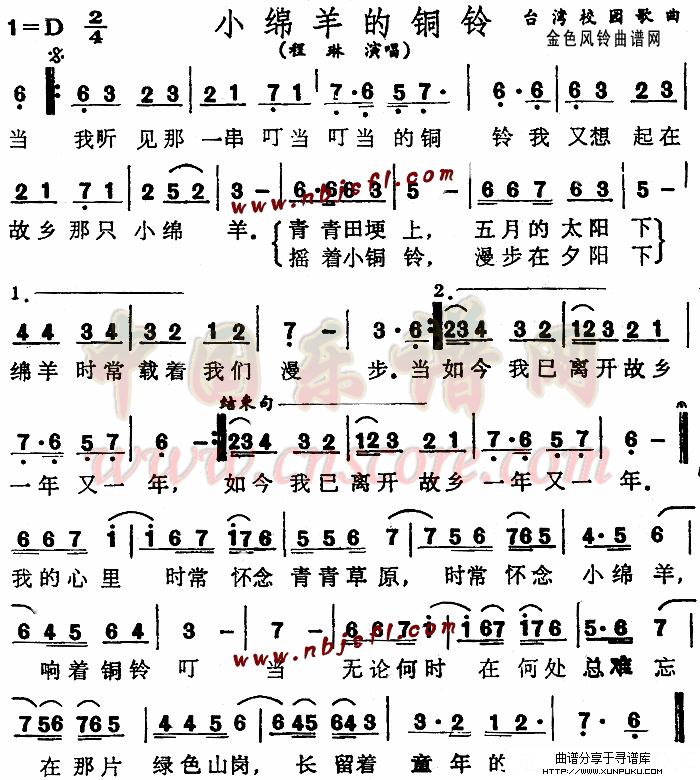 小绵羊的铜铃
台湾校园歌曲
1=D 2/4
(程琳 演唱)
金色风铃曲谱网
6 6 3 2 3 2 1 7 1 7·6 5 7· 6 6 3 2 3
当 我听 见那 一串 叮当 叮当 的铜 铃我 又想 起在
2 1 7 1 2 5 2 3 - 6·6 6 3 5 - 6 6 7 6 3 5 -
www.nbjsfl.com
故乡 那只 小绵 羊. 青青田埂 上, 五月的 太阳 下
摇着小铜 铃, 漫步在 夕阳 下
1. 2.
4 4 3 4 3 2 1 2 7 - 3·6 2 3 4 3 2 1 2 3 2 1
绵羊 时常 载着 我们 漫 步.当 如今 我已 离开 故乡
中国乐谱网
结束句
7·6 5 7 6 - 2 3 4 3 2 1 2 3 2 1 7·6 5 7 6 -
www.cnscore.com
一年 又一 年, 如今 我已 离开 故乡 一年 又一 年.
6 6 7 i i 6 7 i 7 6 6 5 6 7 5 3 2 5 6 7 6 5 4·5 6
我的心里 时常 怀念 青青草原, 时常 怀念 小绵羊,
6 4 5 6 4 3 - 7 - 6 6 7 i i 6 7 i 7 6 5·6 7
www.nbjsfl.com
响着 铜铃 叮 当 无论何时 在 何处 总难 忘
7 5 6 7 6 5 4 5 6 6 4 5 6 4 3 2
7·6
在 那片 绿色山岗, 长 留着 童年的
曲谱分享于寻谱库
HTTP://WWW.XUNPUKU.COM